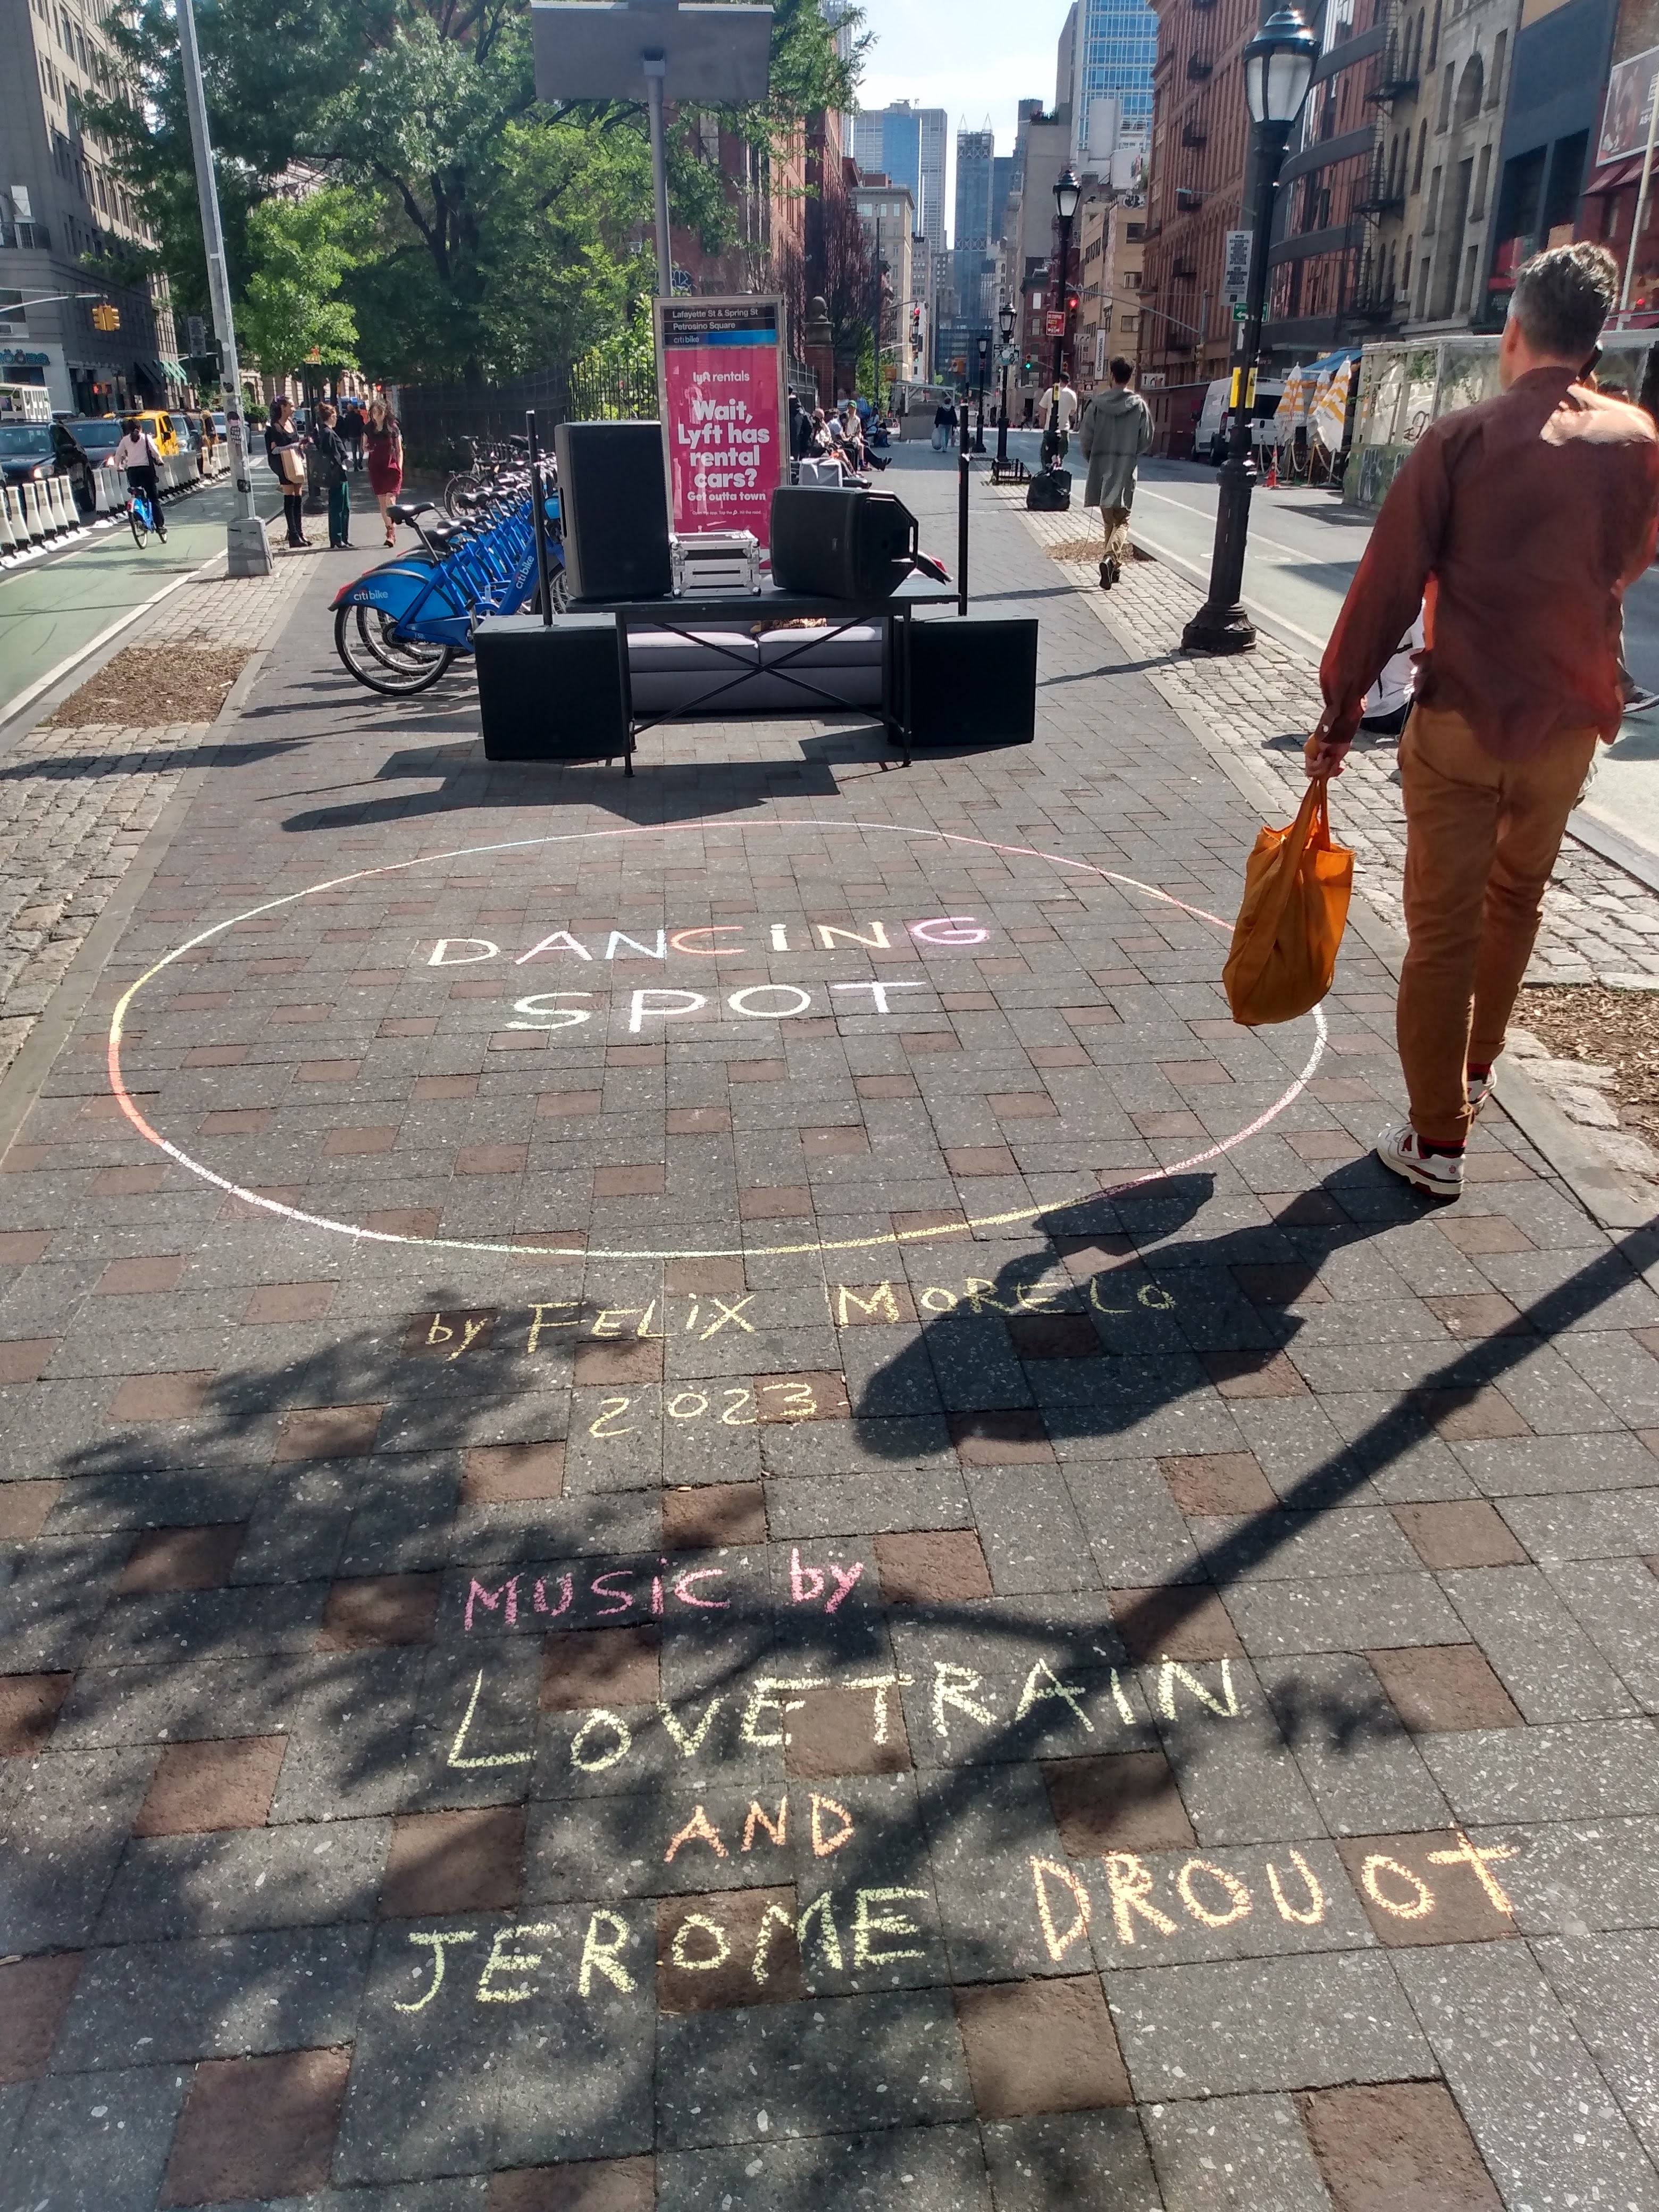 Lafayette St & Spring St
Petrosino Square
citi bike
lyft rentals
Wait,
Lyft has
rental
cars?
Get outta town
citi bike
citi bike
DANCiNG
SPOT
by FELiX MORELO
2023
MUSiC by
LOVETRAIN
AND
JEROME DROUOT